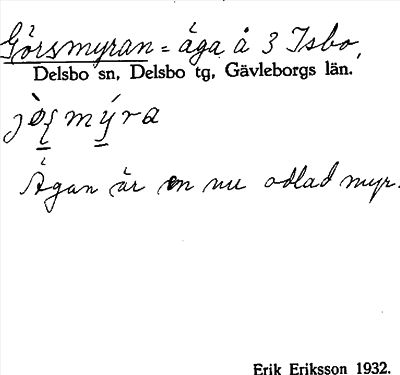 Görsmyran = äga å 3 Isbo,
Delsbo sn, Delsbo tg, Gävleborgs län.
mýra
Ägan är en nu odlad myr.
Erik Eriksson 1932.